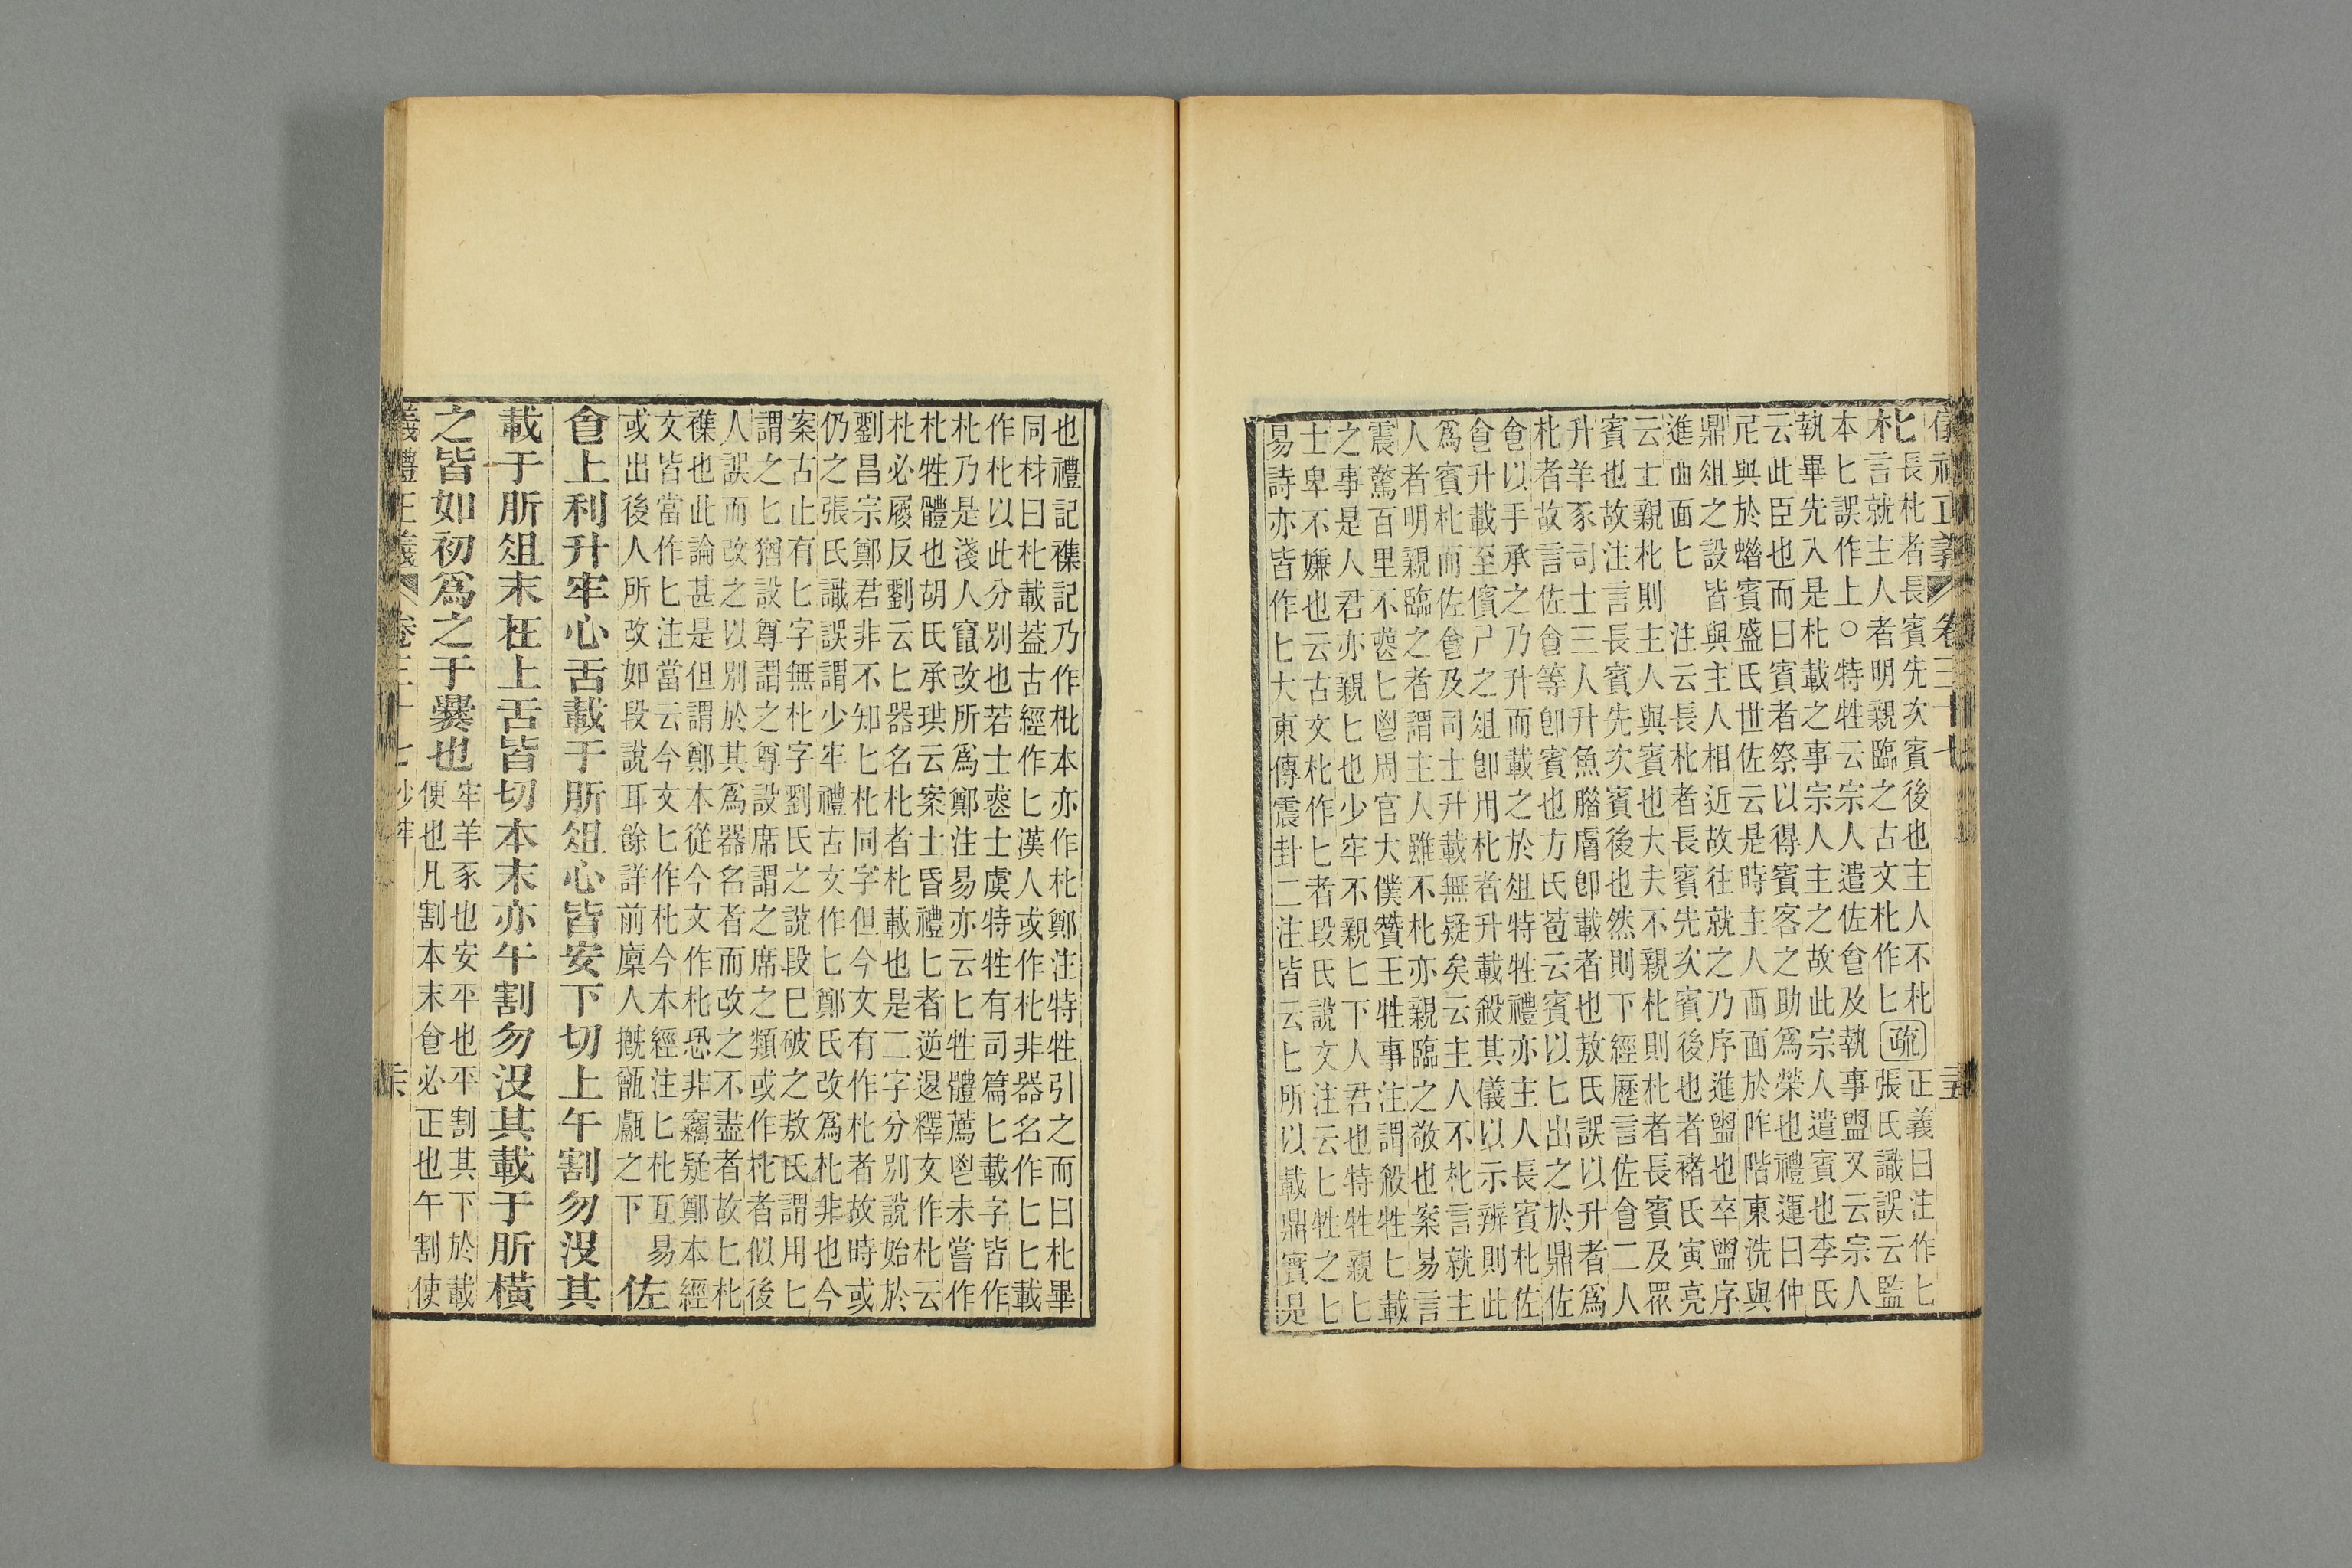 儀禮正義 卷三十七
朼
長朼者長賓先次賓後也主人不朼疏正義曰注作匕
言就主人者明親臨之古文朼作匕張氏識誤云監
本匕誤作上○特牲云宗人遣佐食及執事盥又云宗人
執畢先入是朼載之事宗人主之故此宗人遣賓也李氏
云此臣也而曰賓者祭以得賓客之助爲榮也禮運曰仲
尼與於蜡賓盛氏世佐云是時主人西面於阼階東洗與
鼎俎之設皆與主人相近故往就之乃序進盥也卒盥序
進西面匕 注云長朼者長賓先次賓後也者褚氏寅亮
云士親朼則主人與賓也大夫不親朼則朼者長賓及眾
賓也故注言長賓先次賓後也然則下經歷言佐食二人
升羊豕司士三人升魚腊膚卽載者也敖氏誤以升者爲
朼者故言佐食等卽賓也方氏苞云賓以匕出之於鼎佐
食以手承之乃升而載之於俎特牲禮亦主人長賓朼佐
食升載至儐尸之俎卽用朼者升載殺其儀以示辨則此
爲賓朼而佐食及司士升載無疑矣云主人不朼言就主
人者明親臨之者謂主人雖不朼亦親臨之敬也案易言
震驚百里不喪匕鬯周官大僕贊王牲事注謂殺牲匕載
之事是人君亦親匕也少牢不親匕下人君也特牲親匕
士卑不嫌也云古文朼作匕者段氏說文注云匕牲之匕
易詩亦皆作匕大東傳震卦二注皆云匕所以載鼎實是
也禮記襍記乃作枇本亦作朼鄭注特牲引之而曰朼畢
同材曰朼載葢古經作匕漢人或作朼非器名作匕匕載
作朼以此分別也若士喪士虞特牲有司篇匕載字皆作
朼乃是淺人竄改所爲鄭注易亦云匕牲體薦鬯未嘗作
朼牲體也胡氏承珙云案士昏禮匕者逆退釋文作朼云
朼必屨反劉云匕器名朼者朼載也是二字分別說始於
劉昌宗鄭君非不知匕朼同字但今文有作朼者故時或
仍之張氏識誤謂少牢禮古文作匕鄭氏改爲朼非也今
案古止有匕字無朼字劉氏之說段巳破之敖氏謂用匕
謂之匕猶設尊謂之尊設席謂之席之類或作朼者似後
人誤而改之以別於其爲器名者而改之不盡者故匕朼
襍也此論甚是但謂鄭本從今文作朼恐非竊疑鄭本經
文皆當作匕注當云今文匕作朼今本經注匕朼互易
或出後人所改如段說耳餘詳前廩人摡甑甗之下
佐
食上利升牢心舌載于肵俎心皆安下切上午割勿沒其
載于肵俎末在上舌皆切本末亦午割勿沒其載于肵橫
之皆如初爲之于爨也
牢羊豕也安平也平割其下於載
便也凡割本末食必正也午割使
儀禮正義 卷三十七